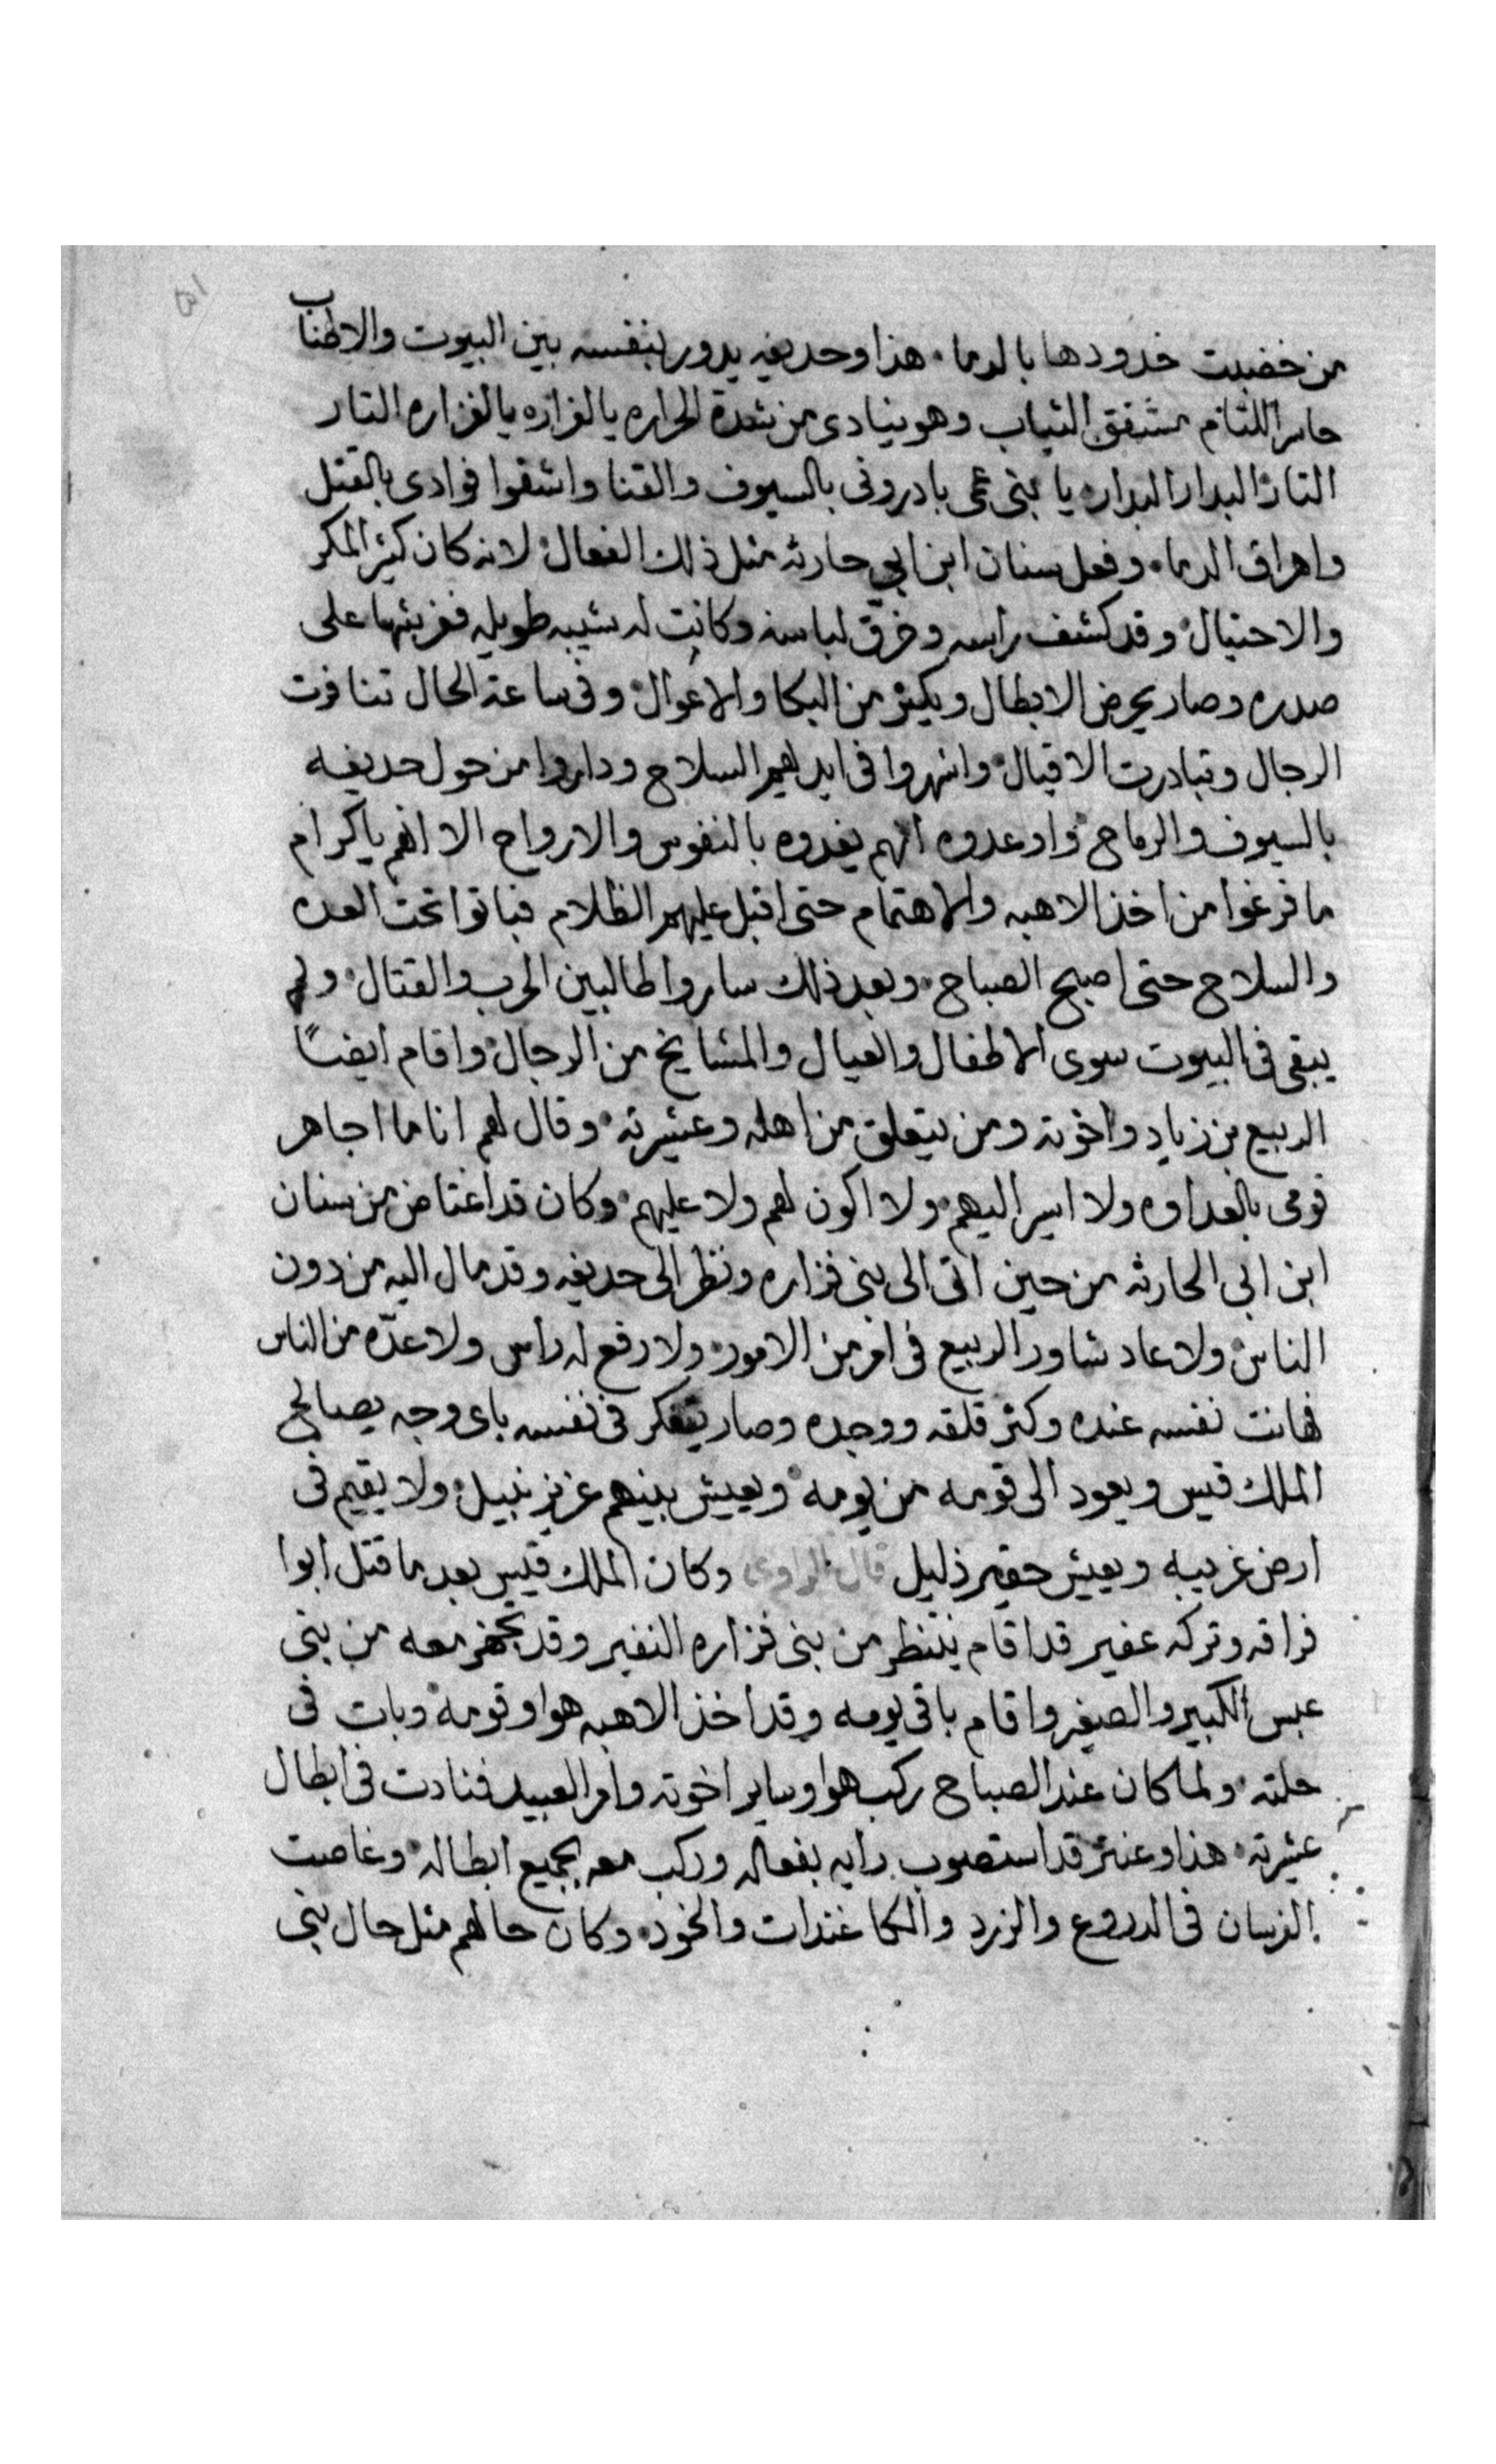 من خضبت خدودها بالدما • هذا وحديفه يدور بنفسه بين البيوت والاطناب
حاسر اللتام مشقق الثياب وهو ينادى من شدة الحراره يالفزاره يالفزاره التار
التار البدار البدار يا بنى عمى بادرونى بالسيوف والقنا واشفوا فوادى بالقتل
واهراق الدما • وفعل سنان ابن ابى حارثه مثل ذلك الفعال لانه كان كثير المكر
والاحتيال وقد كشف راسه وخرّق لباسه وكانت له شيبه طويله ففرشها على
صدره وصار يحرض الابطال ويكثر من البكا والاعوال وفى ساعة الحال تنافرت
الرجال وتبادرت الاقيال واشهروا فى ايديهم السلاح وداروا من حول حديفه
بالسيوف والرماح واوعدوه انهم يفدوه بالنفوس والارواح الا انهم يا كرام
ما فرغوا من اخذ الاهبه والاهتمام حتى اقبل عليهم الظلام فباتوا تحت العده
والسلاح حتى اصبح الصباح • وبعد ذلك ساروا طالبين الحرب والقتال • ولم
يبقى فى البيوت سوى الاطفال والعيال والمشايخ من الرجال واقام ايضاً
الربيع بن زياد واخوته ومن يتعلق من اهله وعشيرته • وقال لهم انا ما اجاهر
قومى بالعداوه ولا اسير اليهم • ولا اكون لهم ولا عليهم • وكان قد اغتاض من سنان
ابن ابى الحارثه من حين اتى الى بنى فزاره ونظر الى حديفه وقد مال اليه من دون
الناس ولا عاد شاور الربيع فى امر من الامور • ولا رفع له راس ولا عدّه من الناس
فهانت نفسه عنده وكثر قلقه ووجده وصار يتفكر فى نفسه باى وجه يصالح
الملك قيس ويعود الى قومه من يومه ويعيش بينهم عزيز نبيل ولا يقيم فى
ارض غريبه ويعيش حقير ذليل قال الراوى وكان الملك قيس بعد ما قتل ابوا
قراقه وتركه عفير قد اقام ينتظر من بنى فزاره النفير وقد تجهز معه من بنى
عبس الكبير والصغير واقام باقى يومه وقد اخذ الاهبه هوا وقومه وبات فى
حلته • ولما كان عند الصباح ركب هوا وساير اخوته وامر العبيد فنادت فى ابطال
عشيرته • هذا وعنتر قد استصوب رايه بفعاله وركب معه بجميع ابطاله • وغاصت
الفرسان فى الدروع والزرد والكاغندات والخود • وكان حالهم مثل حال بنى